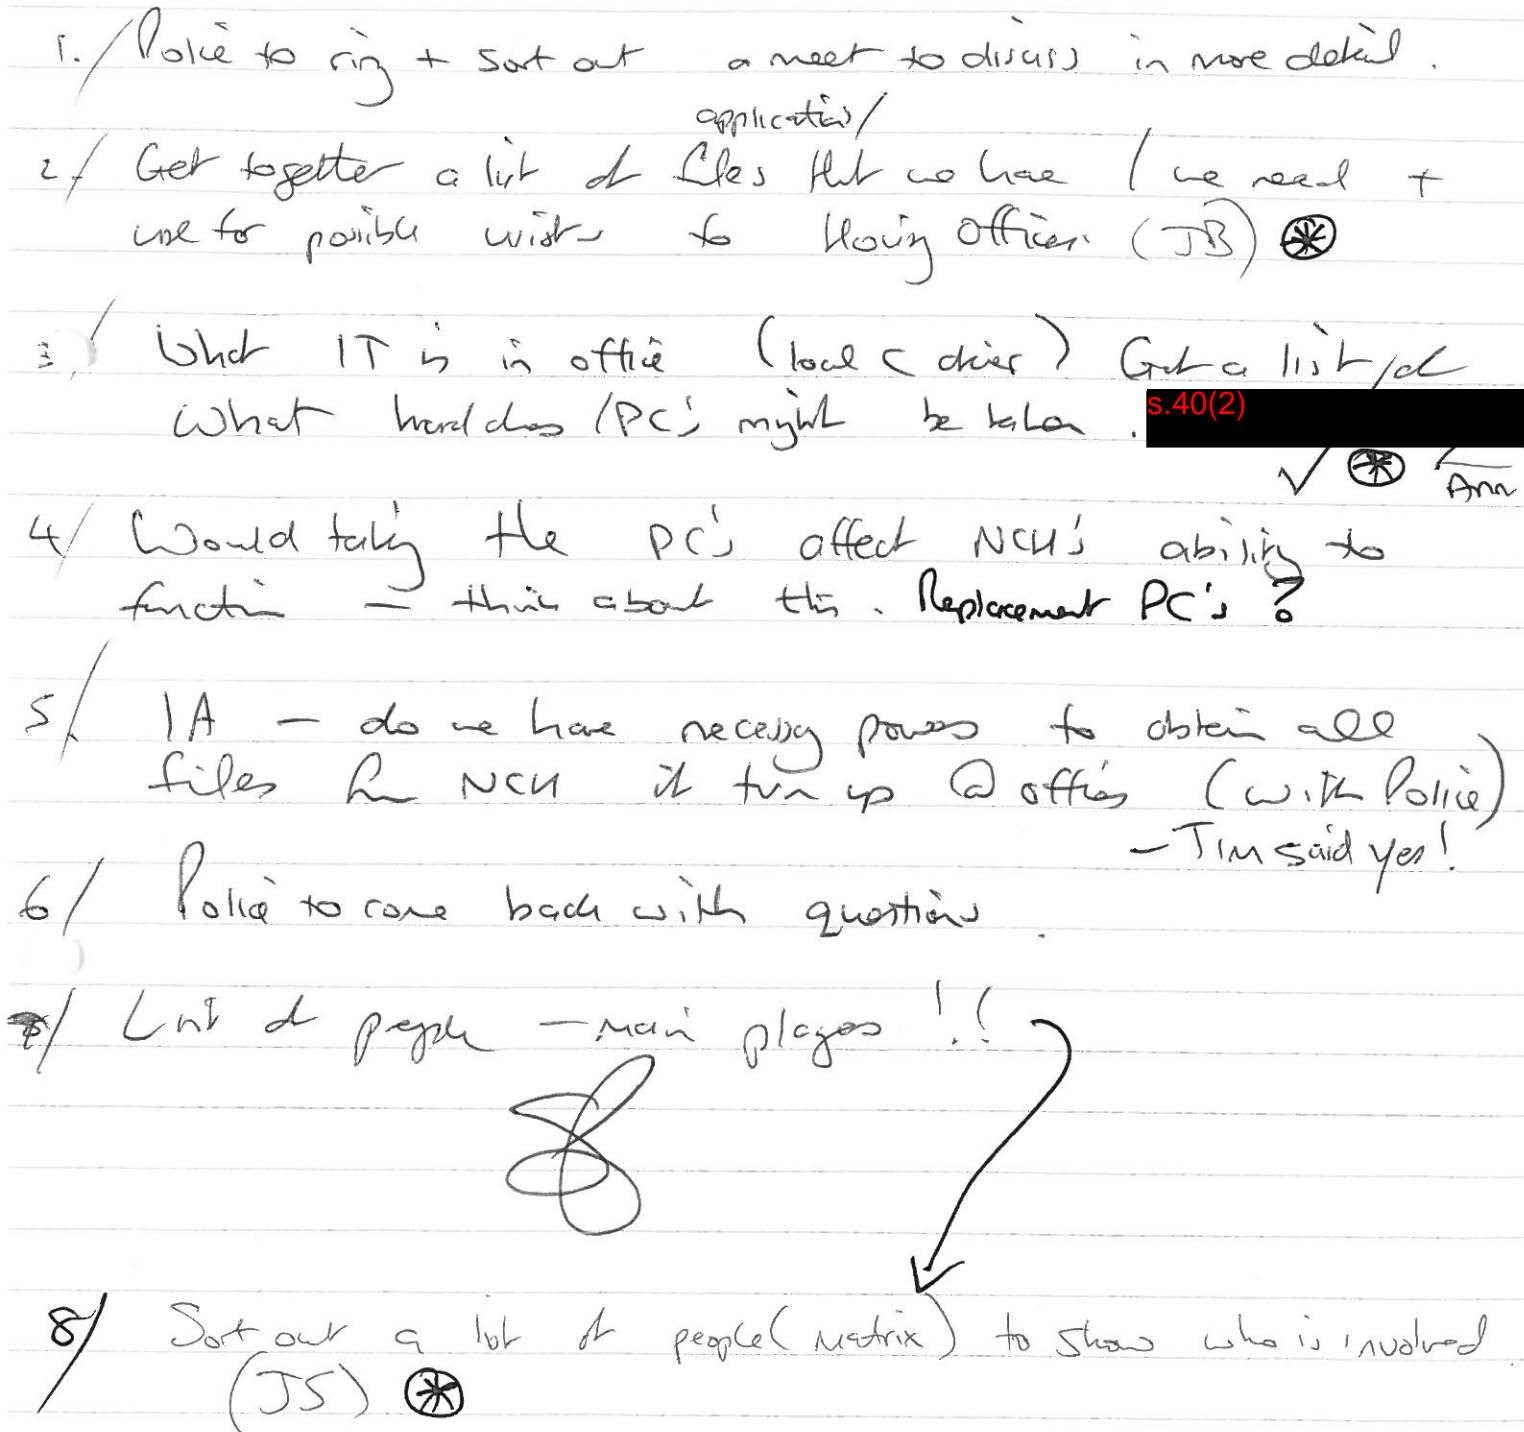 1./ Police to ring + sort out a meet to discuss in more detail.
application/
2/ Get together a list of files that we have / we need +
use for possible visits to Housing Officer. (JB)
3/ What IT is in office (local C drives) Get a list of
what hard discs/PC's might be taken. s.40(2)
Ann
4/ Would taking the PC's affect NCH's ability to
function – think about this. Replacement PC's?
5/. IA – do we have necessary powers to obtain all
files from NCH if turn up @ offices (with Police)
– TIM said yes!
6/ Police to come back with questions.
7/ List of people – main players !!
8/ Sort out a list of people (matrix) to show who is involved.
(JS)